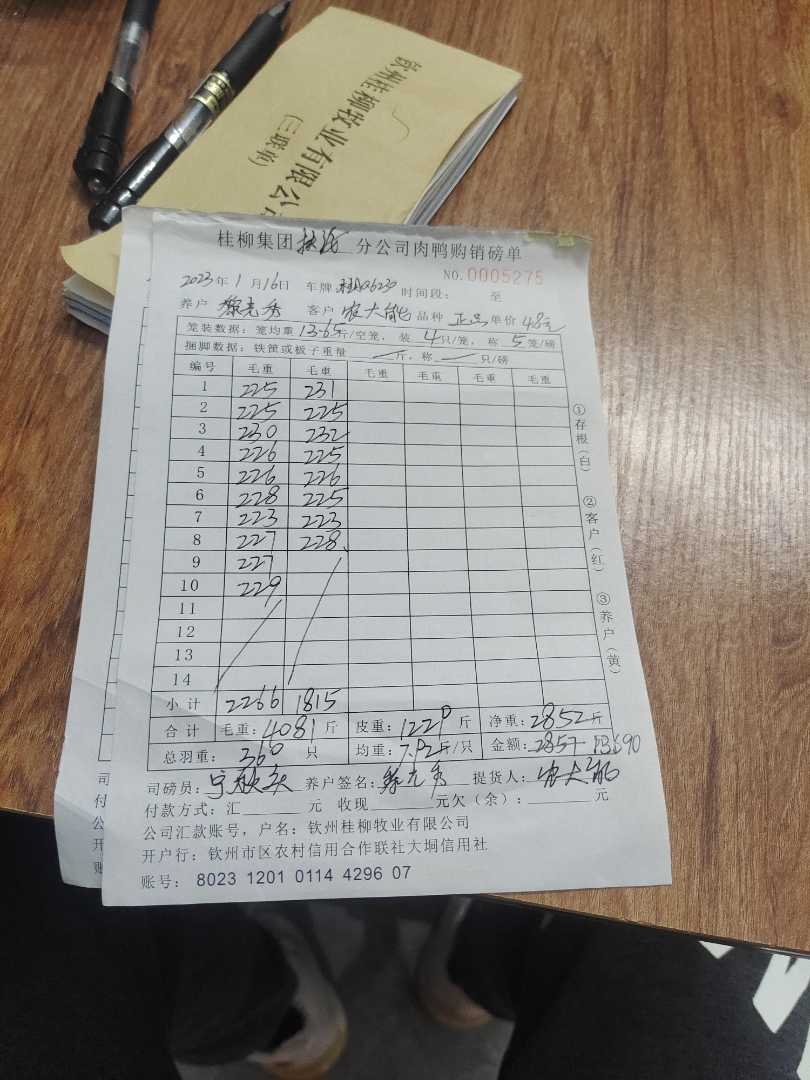 钦州桂柳牧业有限公
(三联单)
桂柳集团 分公司肉鸭购销磅单
NO.0005275
2023年1月16日 车牌 时间段: 至
养户 黎克秀 客户 农大能 品种 正品 单价 4.8元
笼装数据: 笼均重 13.65斤/空笼, 装 4只/笼, 称 5笼/磅
捆脚数据: 铁筐或板子重量 斤, 称 只/磅
编号 毛重 毛重 毛重 毛重 毛重 毛重
1 225 231
2 225 225
3 230 232
4 226 225
5 226 226
6 228 225
7 223 223
8 227 228
9 227
10 229
11
12
13
14
小计 2266 1815
合计 毛重:4081斤 皮重: 斤 净重:2852斤
总羽重: 360 只 均重:7.92斤/只 金额:
司磅员: 养户签名: 提货人:农大能
付款方式:汇 元 收现 元欠(余): 元
公司汇款账号,户名:钦州桂柳牧业有限公司
开户行:钦州市区农村信用合作联社大垌信用社
账号: 8023 1201 0114 4296 07
①存根(白)
②客户(红)
③养户(黄)
司
付
公
开
账